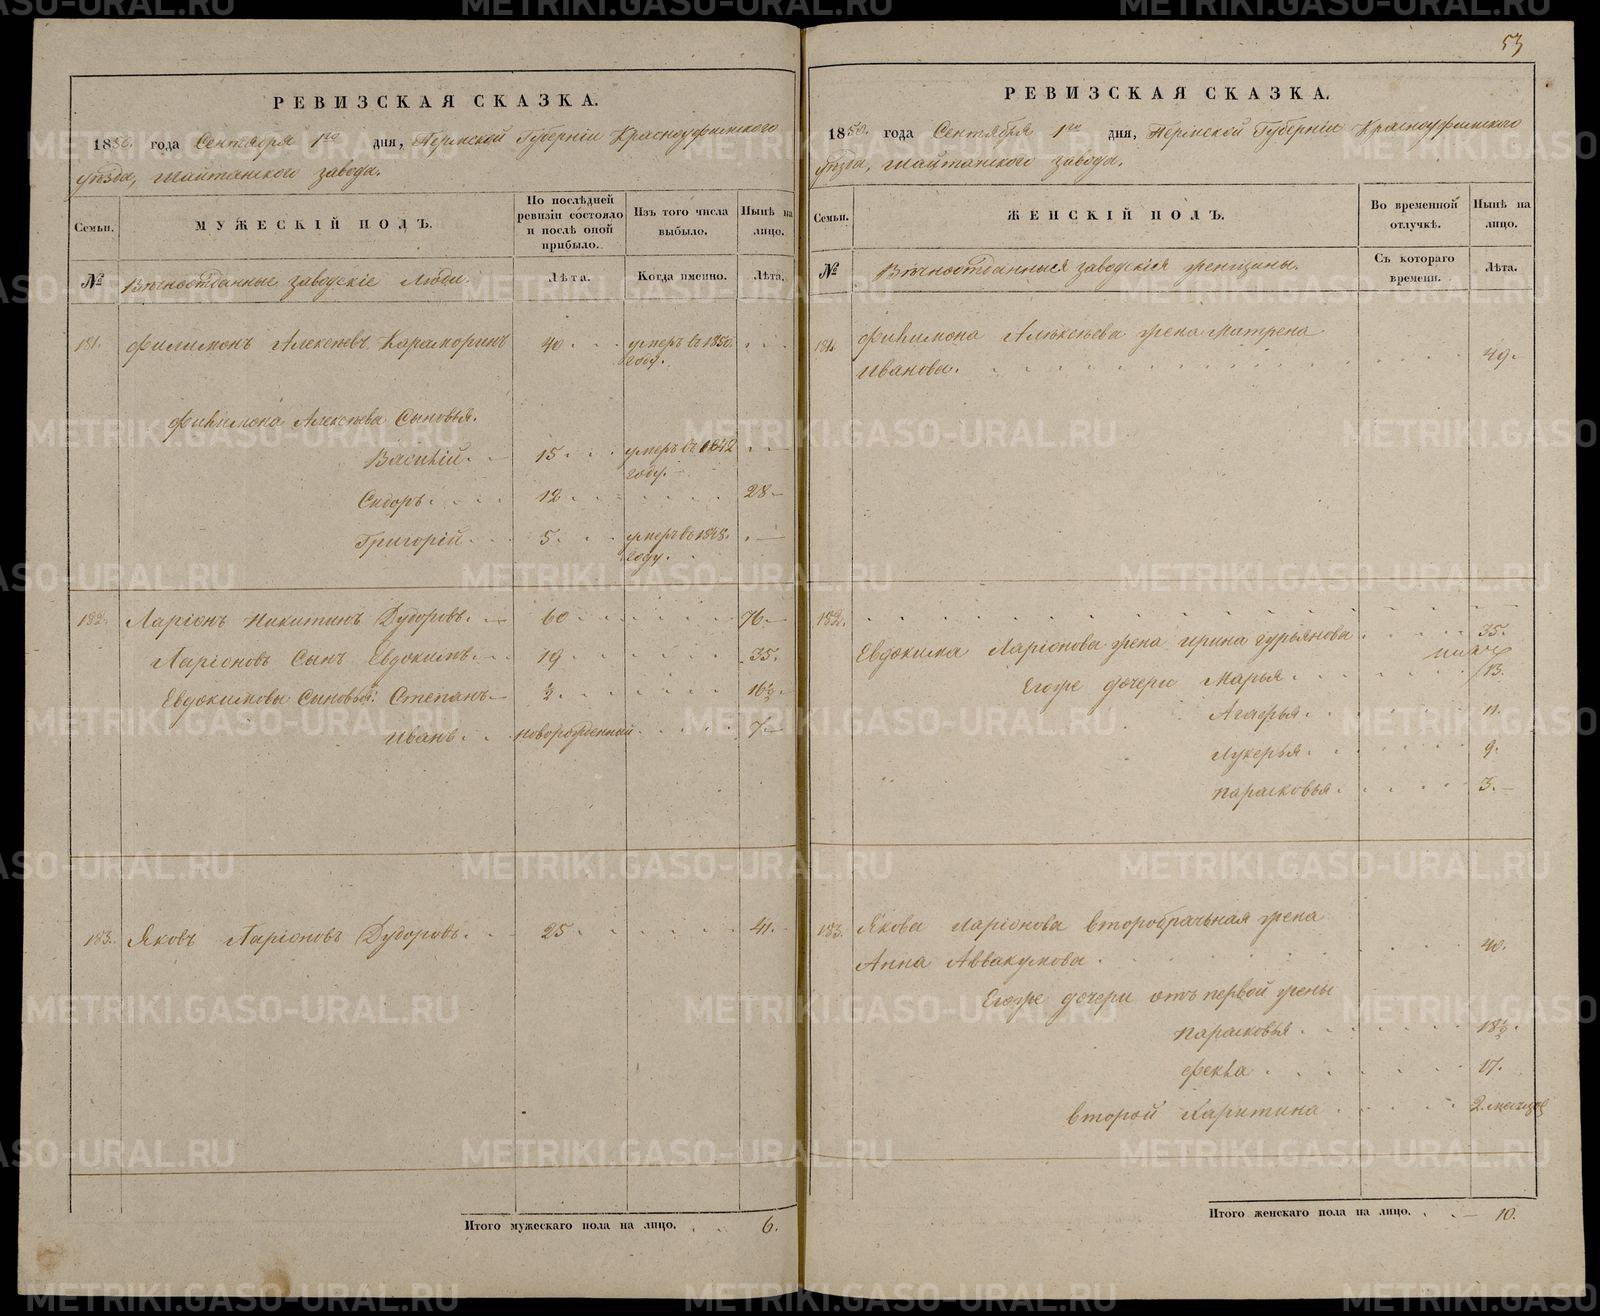 53
РЕВИЗСКАЯ СКАЗКА.
1850. года Сентября 1го дня, Пермской Губерніи Красноуфимскаго
уѣзда, Шайтанскаго завода.
Семьи.
МУЖЕСКІЙ ПОЛЪ.
По послѣдней
ревизіи состояло
и послѣ оной
прибыло.
Изъ того числа
выбыло.
Нынѣ на
лицо.
№
Вѣчноотданные заводскіе люди.
Лѣта.
Когда именно.
Лѣта.
181. Филимонъ Алексѣевъ Караморинъ 40 умеръ въ 1850
году.
Филимона Алексѣева Сыновья.
Василій. 15 умеръ въ 1842
году.
Сидоръ 12 28
Григорій 5 умеръ въ 1848
году.
182. Ларіонъ Никитинъ Дудоровъ. 60 76
Ларіоновъ Сынъ Евдокимъ. 19 35.
Евдокимовы Сыновья: Степанъ ½ 16½
Иванъ. новорожденный 7
183. Яковъ Ларіоновъ Дудоровъ. 25 41.
Итого мужескаго пола на лицо. 6.
РЕВИЗСКАЯ СКАЗКА.
1850. года Сентября 1го дня, Пермской Губерніи Красноуфимскаго
уѣзда, Шайтанскаго завода.
Семьи.
ЖЕНСКІЙ ПОЛЪ.
Во временной
отлучкѣ.
Нынѣ на
лицо.
№
Вѣчноотданныя заводскія женщины.
Съ котораго
времени.
Лѣта.
181. Филимона Алексѣева жена Матрена
Иванова. 49.
182.
Евдокима Ларіонова жена Ирина Гурьянова 35.
Егоже дочери Марья 13.
Агафья 11.
Лукерья 9.
Парасковья 3.
183. Якова Ларіонова второбрачная жена
Анна Аввакумова 40.
Егоже дочери отъ первой жены
Парасковья 18½.
Фекла 17.
второй Харитина 2. месяцов
Итого женскаго пола на лицо. 10.
METRIKI.GASO-URAL.RU